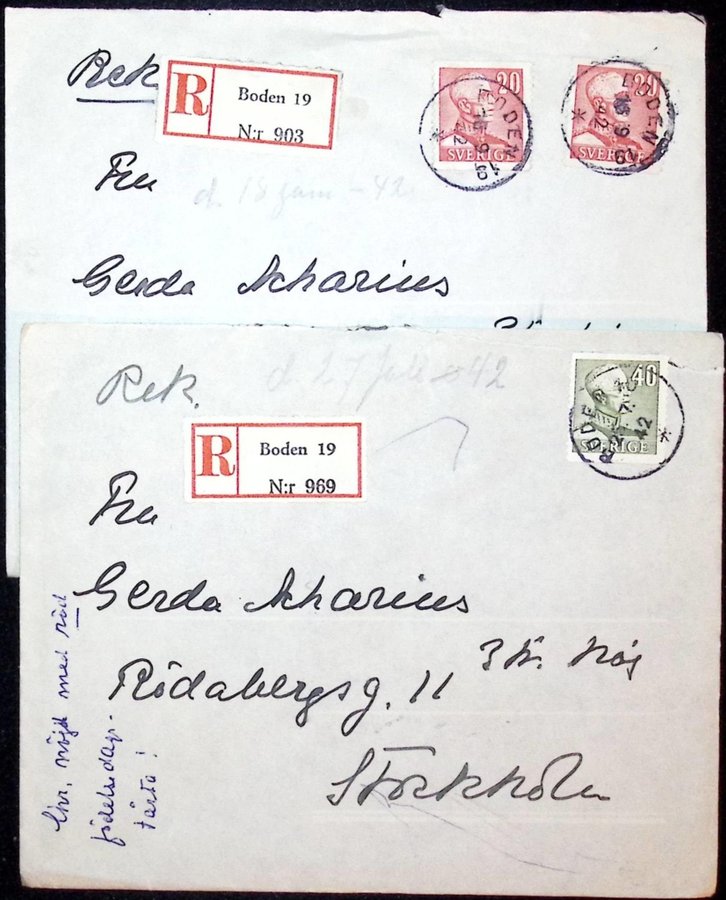 Rek.
R
Boden 19
N:r 903
20
SVERIGE
BODEN 19
20
SVERIGE
BODEN 19
Fru
d. 18 juni -42
Gerda Acharius
Rek.
d. 27 juli -42
R
Boden 19
N:r 969
40
SVERIGE
42
Fru
Gerda Acharius
Rödabergsg. 11 3 tr. hög
Stockholm
Chr. nöjd med röd
födelsedags-
tårta!